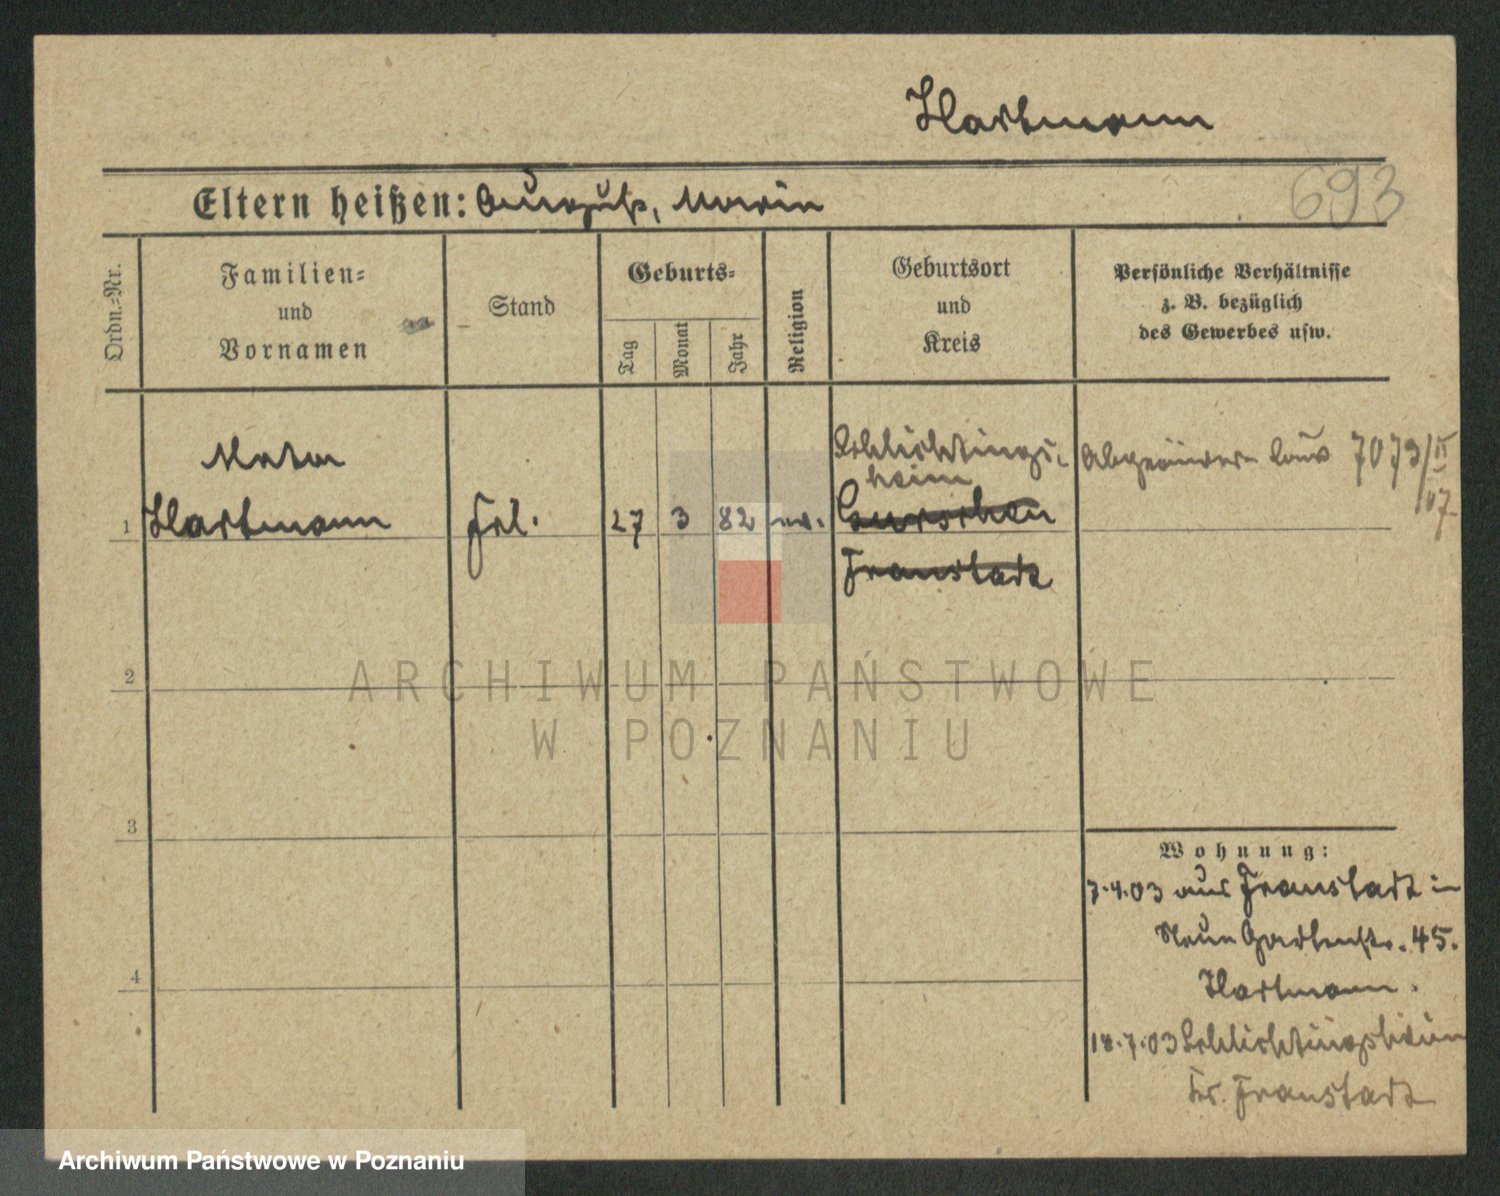 Hartmann
693
Eltern heißen: August, Maria
Ordn.-Nr.
Familien-
und
Vornamen
Stand
Geburts-
Tag
Monat
Jahr
Religion
Geburtsort
und
Kreis
Persönliche Verhältnisse
z. B. bezüglich
des Gewerbes usw.
Schlichtings-
heim
7079/II
07
Marta
1 Hartmann Frl. 27 3 82 ev. Gurschen
Fraustadt
2
3
4
Wohnung:
7.4.03 aus Fraustadt in
Neue Gartenstr. 45.
Hartmann.
18.7.03 Schlichtingsheim
Kr. Fraustadt
ARCHIWUM PAŃSTWOWE
W POZNANIU
Archiwum Państwowe w Poznaniu